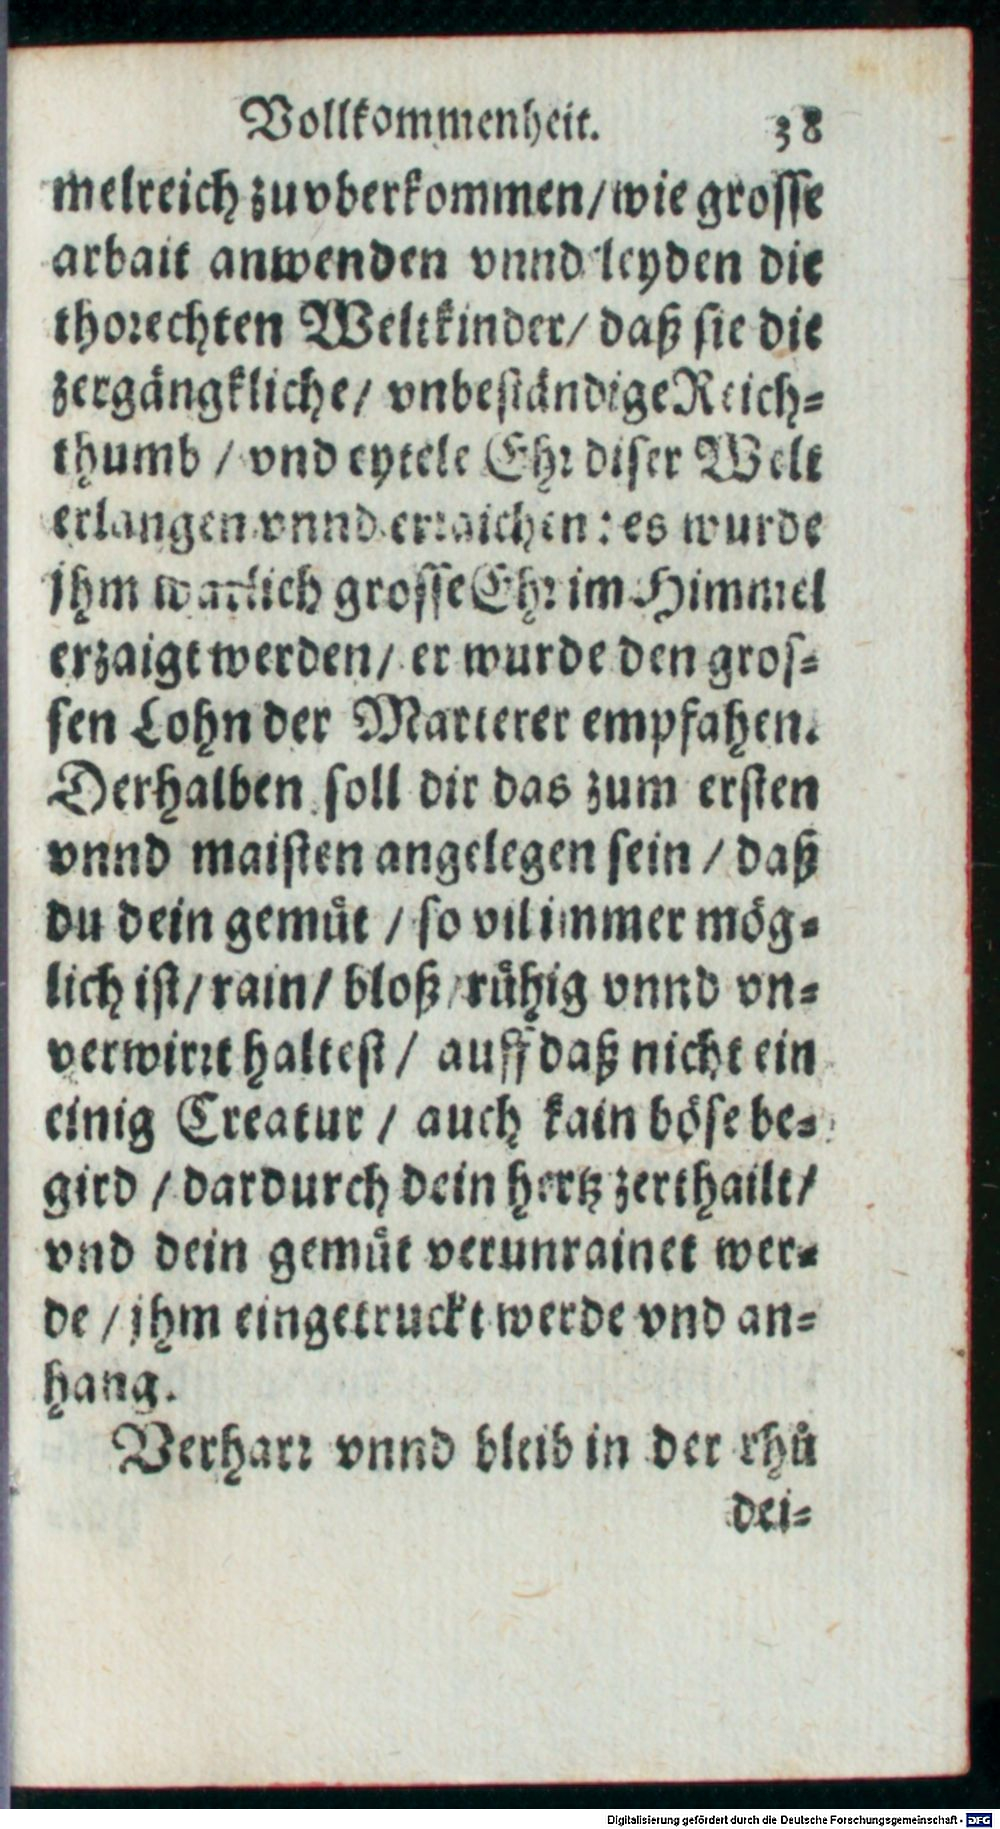 Vollkommenheit. 38
melreich zuvberkommen/ wie grosse
arbait anwenden vnnd leyden die
thorechten Weltkinder/ daß sie die
zergängkliche/ vnbeständige Reich-
thumb / vnd eytele Ehr diser Welt
erlangen vnnd erraichen: es wurde
jhm warlich grosse Ehr im Himmel
erzaigt werden/ er wurde den gros-
sen Lohn der Marterer empfahen.
Derhalben soll dir das zum ersten
vnnd maisten angelegen sein / daß
du dein gemuͤt / so vil immer moͤg-
lich ist/ rain/ bloß/ ruͤhig vnnd vn-
verwirrt haltest / auff daß nicht ein
einig Creatur / auch kain boͤse be-
gird / dardurch dein hertz zerthailt/
vnd dein gemuͤt verunrainet wer-
de / jhm eingetruckt werde vnd an-
hang.
Verharr vnnd bleib in der rhuͦ
dei-
Digitalisierung gefördert durch die Deutsche Forschungsgemeinschaft - DFG